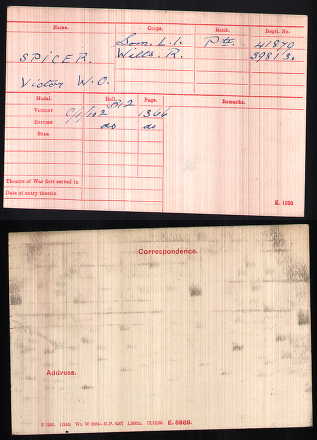 Name. Corps. Rank. Regtl. No.
Som. L. I. Pte. 41870
SPICER. Wilts. R. 39813.
Victor W. O.
Medal. Roll. Page. Remarks.
VICTORY 1344
BRITISH do do
STAR
Theatre of War first served in
Date of entry therein
K. 1380
Correspondence.
Address.